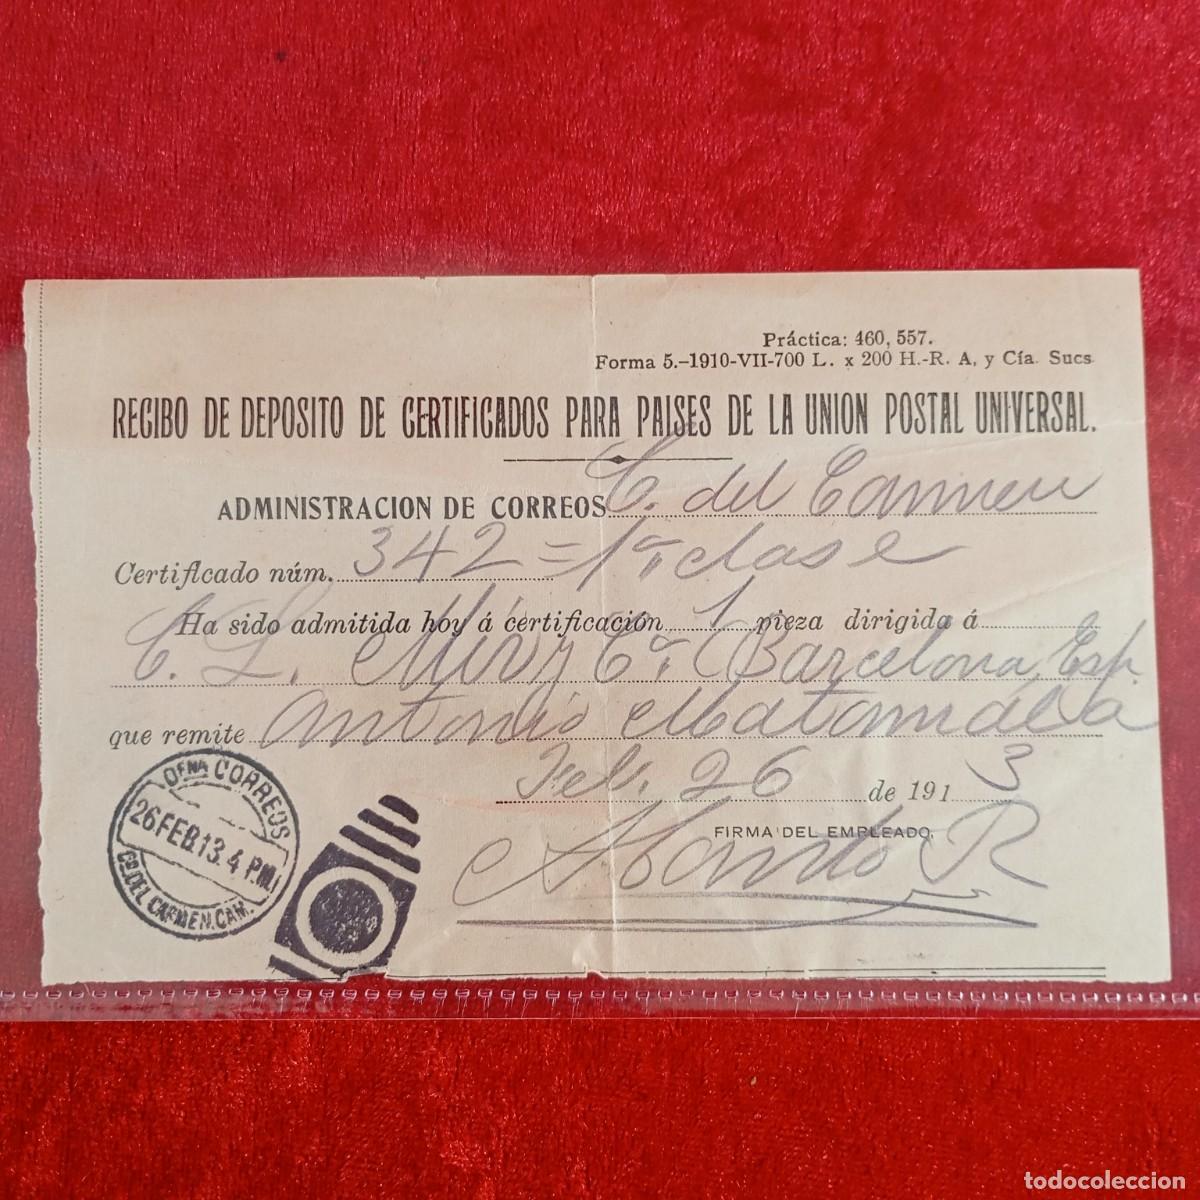 Práctica: 460, 557.
Forma 5.-1910-VII-700 L. x 200 H.-R. A, y Cía. Sucs
RECIBO DE DEPOSITO DE CERTIFICADOS PARA PAISES DE LA UNION POSTAL UNIVERSAL.
ADMINISTRACION DE CORREOS C. del Carmen
Certificado núm. 342 = 1ª clase
Ha sido admitida hoy á certificación 1 pieza dirigida á
C. L. y Cª Barcelona, Esp.
que remite Antonio Matamala
Feb. 26 de 1913
FIRMA DEL EMPLEADO,
OFNA CORREOS
26 FEB.13. 4 P.M.
CD. DEL CARMEN. CAM.
todocoleccion